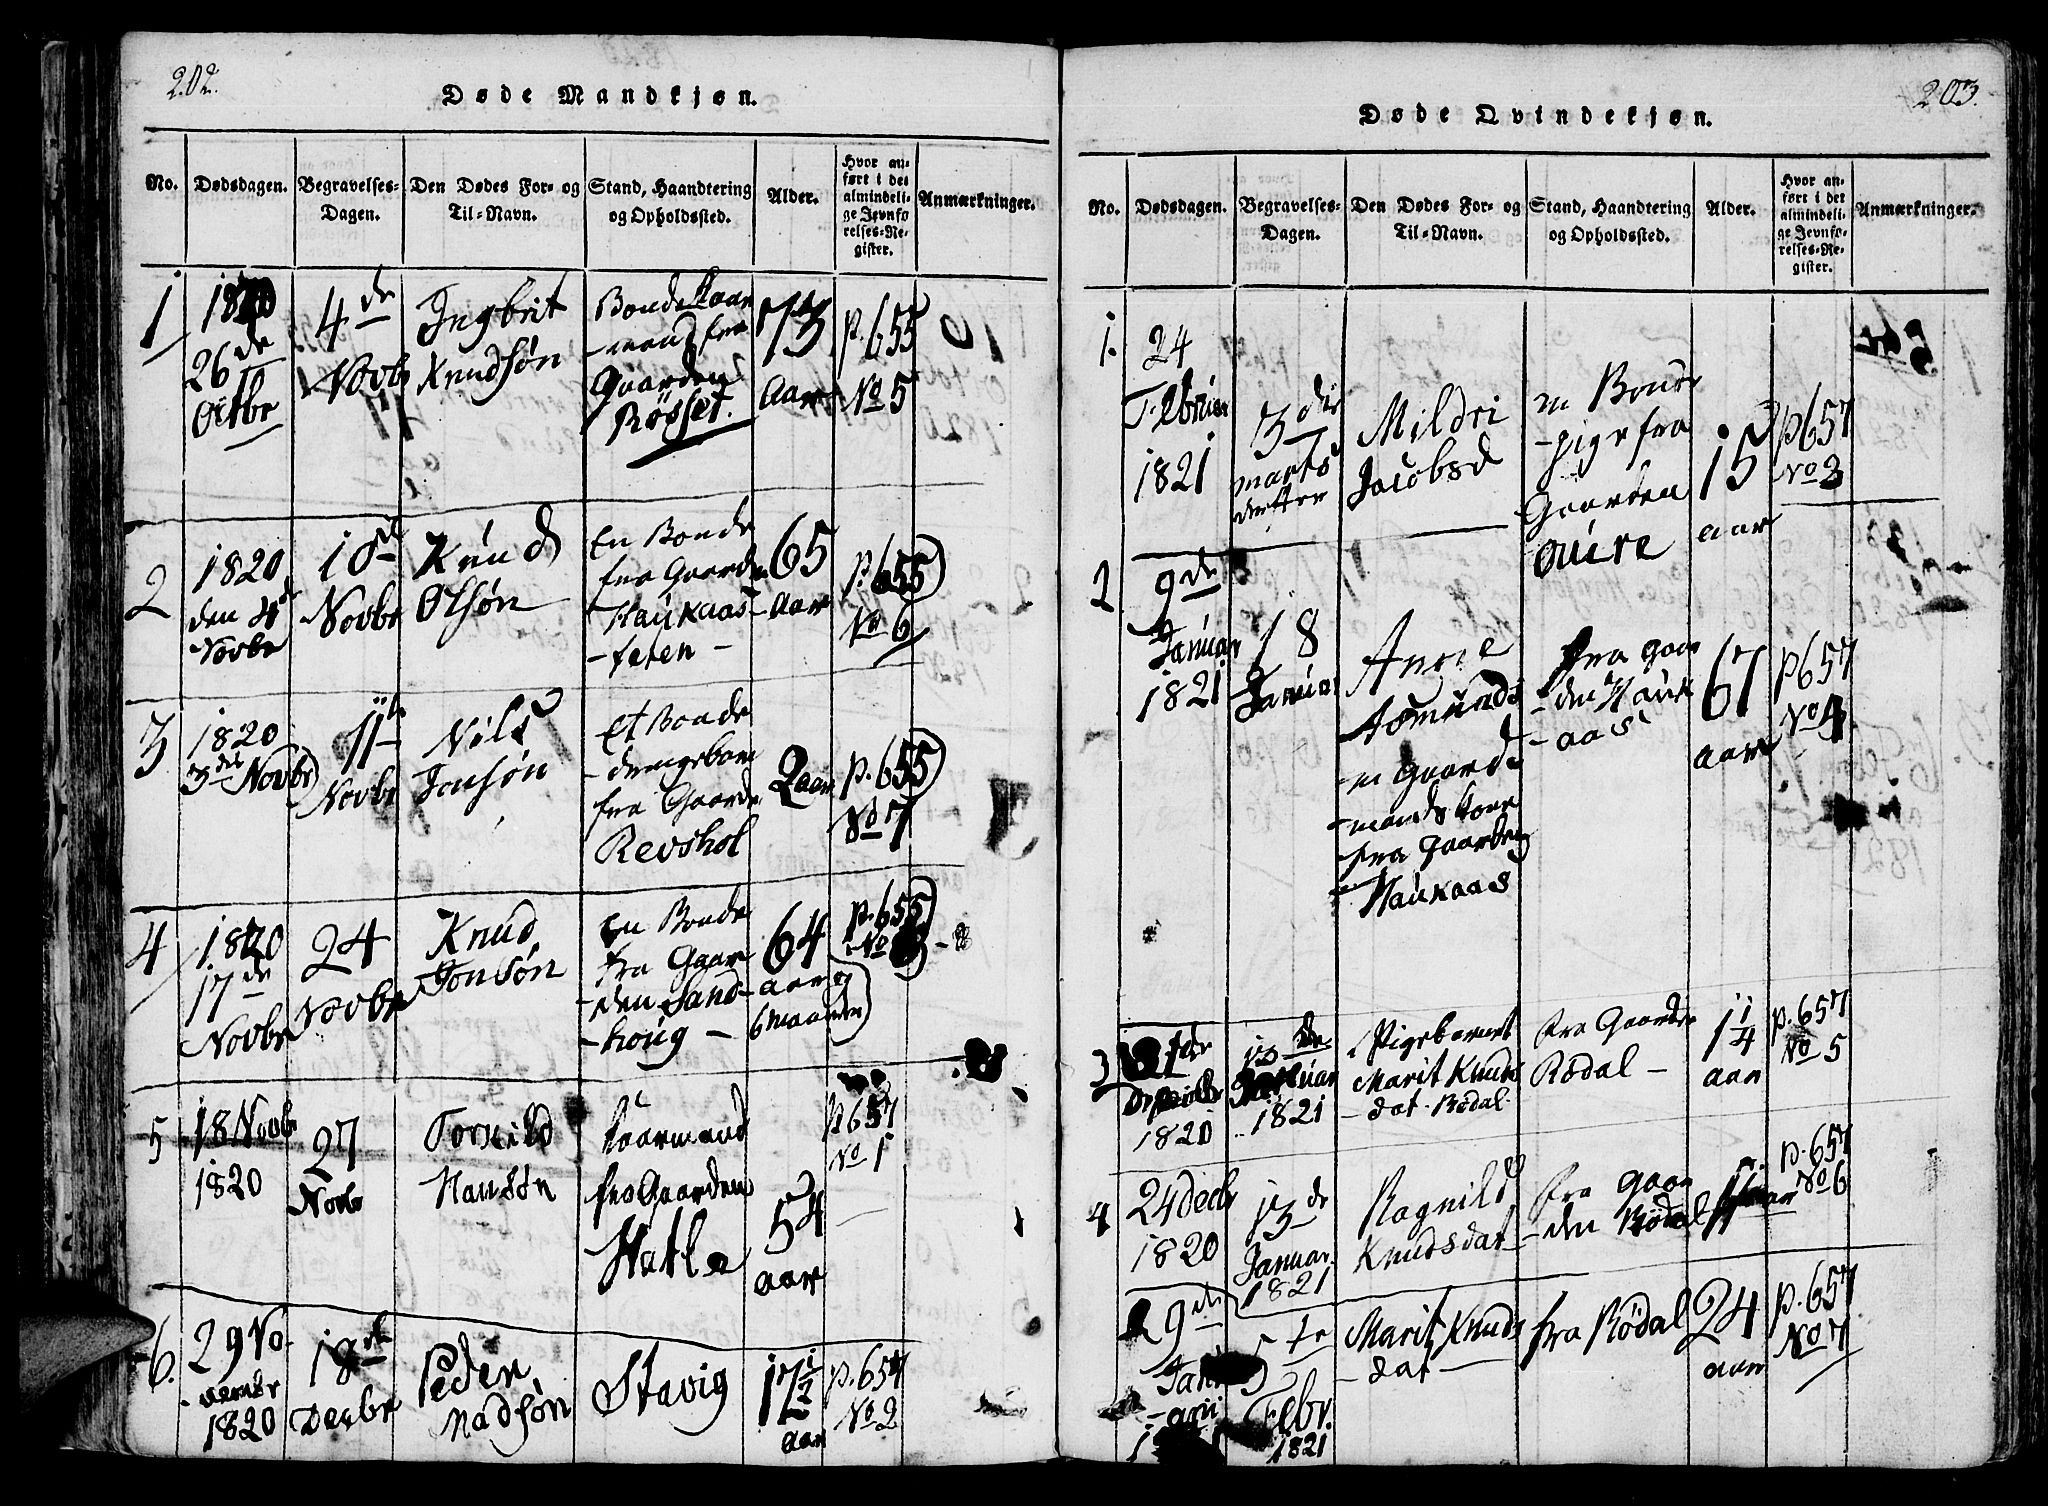 202.
Døde Mandkjøn.
No.
Dødsdagen.
Begravelses-
Dagen.
Den Dødes For- og
Til-Navn.
Stand, Haandtering
og Opholdssted.
Alder.
Hvor an-
ført i det
almindeli-
ge Jevnfø
relses-Re-
gister.
Anmærkninger.
1
1820
26de
Octbr
4de
Novbr
Ingbrit
Knudsøn
Bonde Kaar
-mand fra
Gaarden
Røsset.
73
Aar
p. 655
No 5
2
1820
den 4de
Novbr
10de
Novbr
Knud
Olsøn
En Bonde
fra Gaarden
Haukaas-
-teten-
65
Aar
p. 655
No 6
3
1820
3de Novbr
11te
Novbr
Nils
Jonsøn
Et Bonde
-drengebarn
fra Gaarde
Revshol
2 aar
p. 655
No 7
4
1820
17de
Novbr
24
Novbr
Knud
Jonsøn
En Bonde
fra Gaar
-den Sand-
-houg-
64
aar og
6 maaneder
p. 655
No 8
- 8
5
18 Novbr
1820
27
Novbr
Torkild
Hansøn
Kaarmand
fra Gaarden
Hatle
54
aar
p 657
No 1
6.
29 No-
1820
18de
Decbr
Peder
Madsøn
Stavig
17½
aar
p. 657
No 2
203.
Døde Qvindekjøn.
No.
Dødsdagen.
Begravelses-
Dagen.
Den Dødes For- og
Til-Navn.
Stand, Haandtering
og Opholdssted.
Alder.
Hvor an-
ført i det
almindeli-
ge Jevnfø-
relses-Re-
gister.
Anmærkninger.
1.
24
Februar
1821
3die
marts
derefter
Mildri
Jacobsd
en Bonde
-pige fra
Gaarden
Ouire
15
aar
p 657
No 3
2
9de
Januar
1821
18
Januar
Anne
Asmunds
-en Gaard
-mands Kone
-fra Gaarden
Haukaas
fra Gaar
-den Hauk
-aas
67
aar
p 657
No 4
3
1820
13de
Januar
1821
Pigebarnet
Marit Knuds
-dat. Rødal.
fra Gaarden
Rødal -
1 1/4
aar
p. 657
No 5
4
24 Decbr
1820
13de
Januar
1821
Ragnild
Knudsdat
fra Gaar
-den Rødal
p. 657
No 6
29de
Janu
-arii
5te
Febr.
1821
Marit Knuds
-dat-
fra Rødal
24
aar
p. 657
No 7